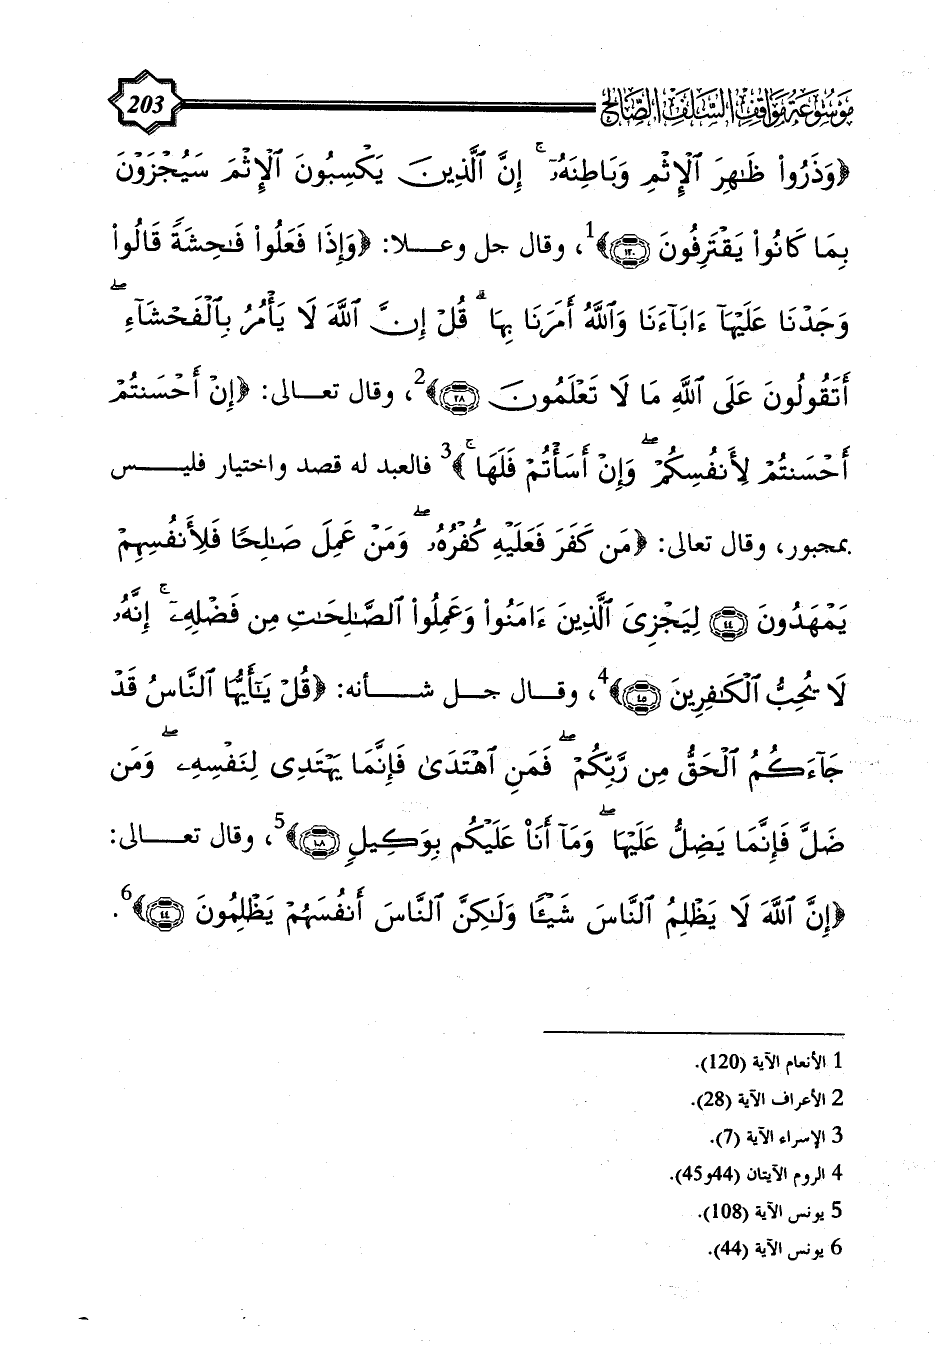 موسوعة مواقف السلف الصالح 203
﴿وَذَرُواْ ظَٰهِرَ ٱلْإِثْمِ وَبَاطِنَهُۥٓ ۚ إِنَّ ٱلَّذِينَ يَكْسِبُونَ ٱلْإِثْمَ سَيُجْزَوْنَ
بِمَا كَانُواْ يَقْتَرِفُونَ ﴿١٢٠﴾﴾1، وقال جل وعلا: ﴿وَإِذَا فَعَلُواْ فَٰحِشَةً قَالُواْ
وَجَدْنَا عَلَيْهَآ ءَابَآءَنَا وَٱللَّهُ أَمَرَنَا بِهَا ۗ قُلْ إِنَّ ٱللَّهَ لَا يَأْمُرُ بِٱلْفَحْشَآءِ ۖ
أَتَقُولُونَ عَلَى ٱللَّهِ مَا لَا تَعْلَمُونَ ﴿٢٨﴾﴾2، وقال تعالى: ﴿إِنْ أَحْسَنتُمْ
أَحْسَنتُمْ لِأَنفُسِكُمْ ۖ وَإِنْ أَسَأْتُمْ فَلَهَا ۚ﴾3 فالعبد له قصد واختيار فليس
بمجبور، وقال تعالى: ﴿مَن كَفَرَ فَعَلَيْهِ كُفْرُهُۥ ۖ وَمَنْ عَمِلَ صَٰلِحًا فَلِأَنفُسِهِمْ
يَمْهَدُونَ ﴿٤٤﴾ لِيَجْزِىَ ٱلَّذِينَ ءَامَنُواْ وَعَمِلُواْ ٱلصَّٰلِحَٰتِ مِن فَضْلِهِۦٓ ۚ إِنَّهُۥ
لَا يُحِبُّ ٱلْكَٰفِرِينَ ﴿٤٥﴾﴾4، وقال جل شأنه: ﴿قُلْ يَٰٓأَيُّهَا ٱلنَّاسُ قَدْ
جَآءَكُمُ ٱلْحَقُّ مِن رَّبِّكُمْ ۖ فَمَنِ ٱهْتَدَىٰ فَإِنَّمَا يَهْتَدِى لِنَفْسِهِۦ ۖ وَمَن
ضَلَّ فَإِنَّمَا يَضِلُّ عَلَيْهَا ۖ وَمَآ أَنَا۠ عَلَيْكُم بِوَكِيلٍ ﴿١٠٨﴾﴾5، وقال تعالى:
﴿إِنَّ ٱللَّهَ لَا يَظْلِمُ ٱلنَّاسَ شَيْـًٔا وَلَٰكِنَّ ٱلنَّاسَ أَنفُسَهُمْ يَظْلِمُونَ ﴿٤٤﴾﴾6.
1 الأنعام الآية (120).
2 الأعراف الآية (28).
3 الإسراء الآية (7).
4 الروم الآيتان (44و45).
5 يونس الآية (108).
6 يونس الآية (44).